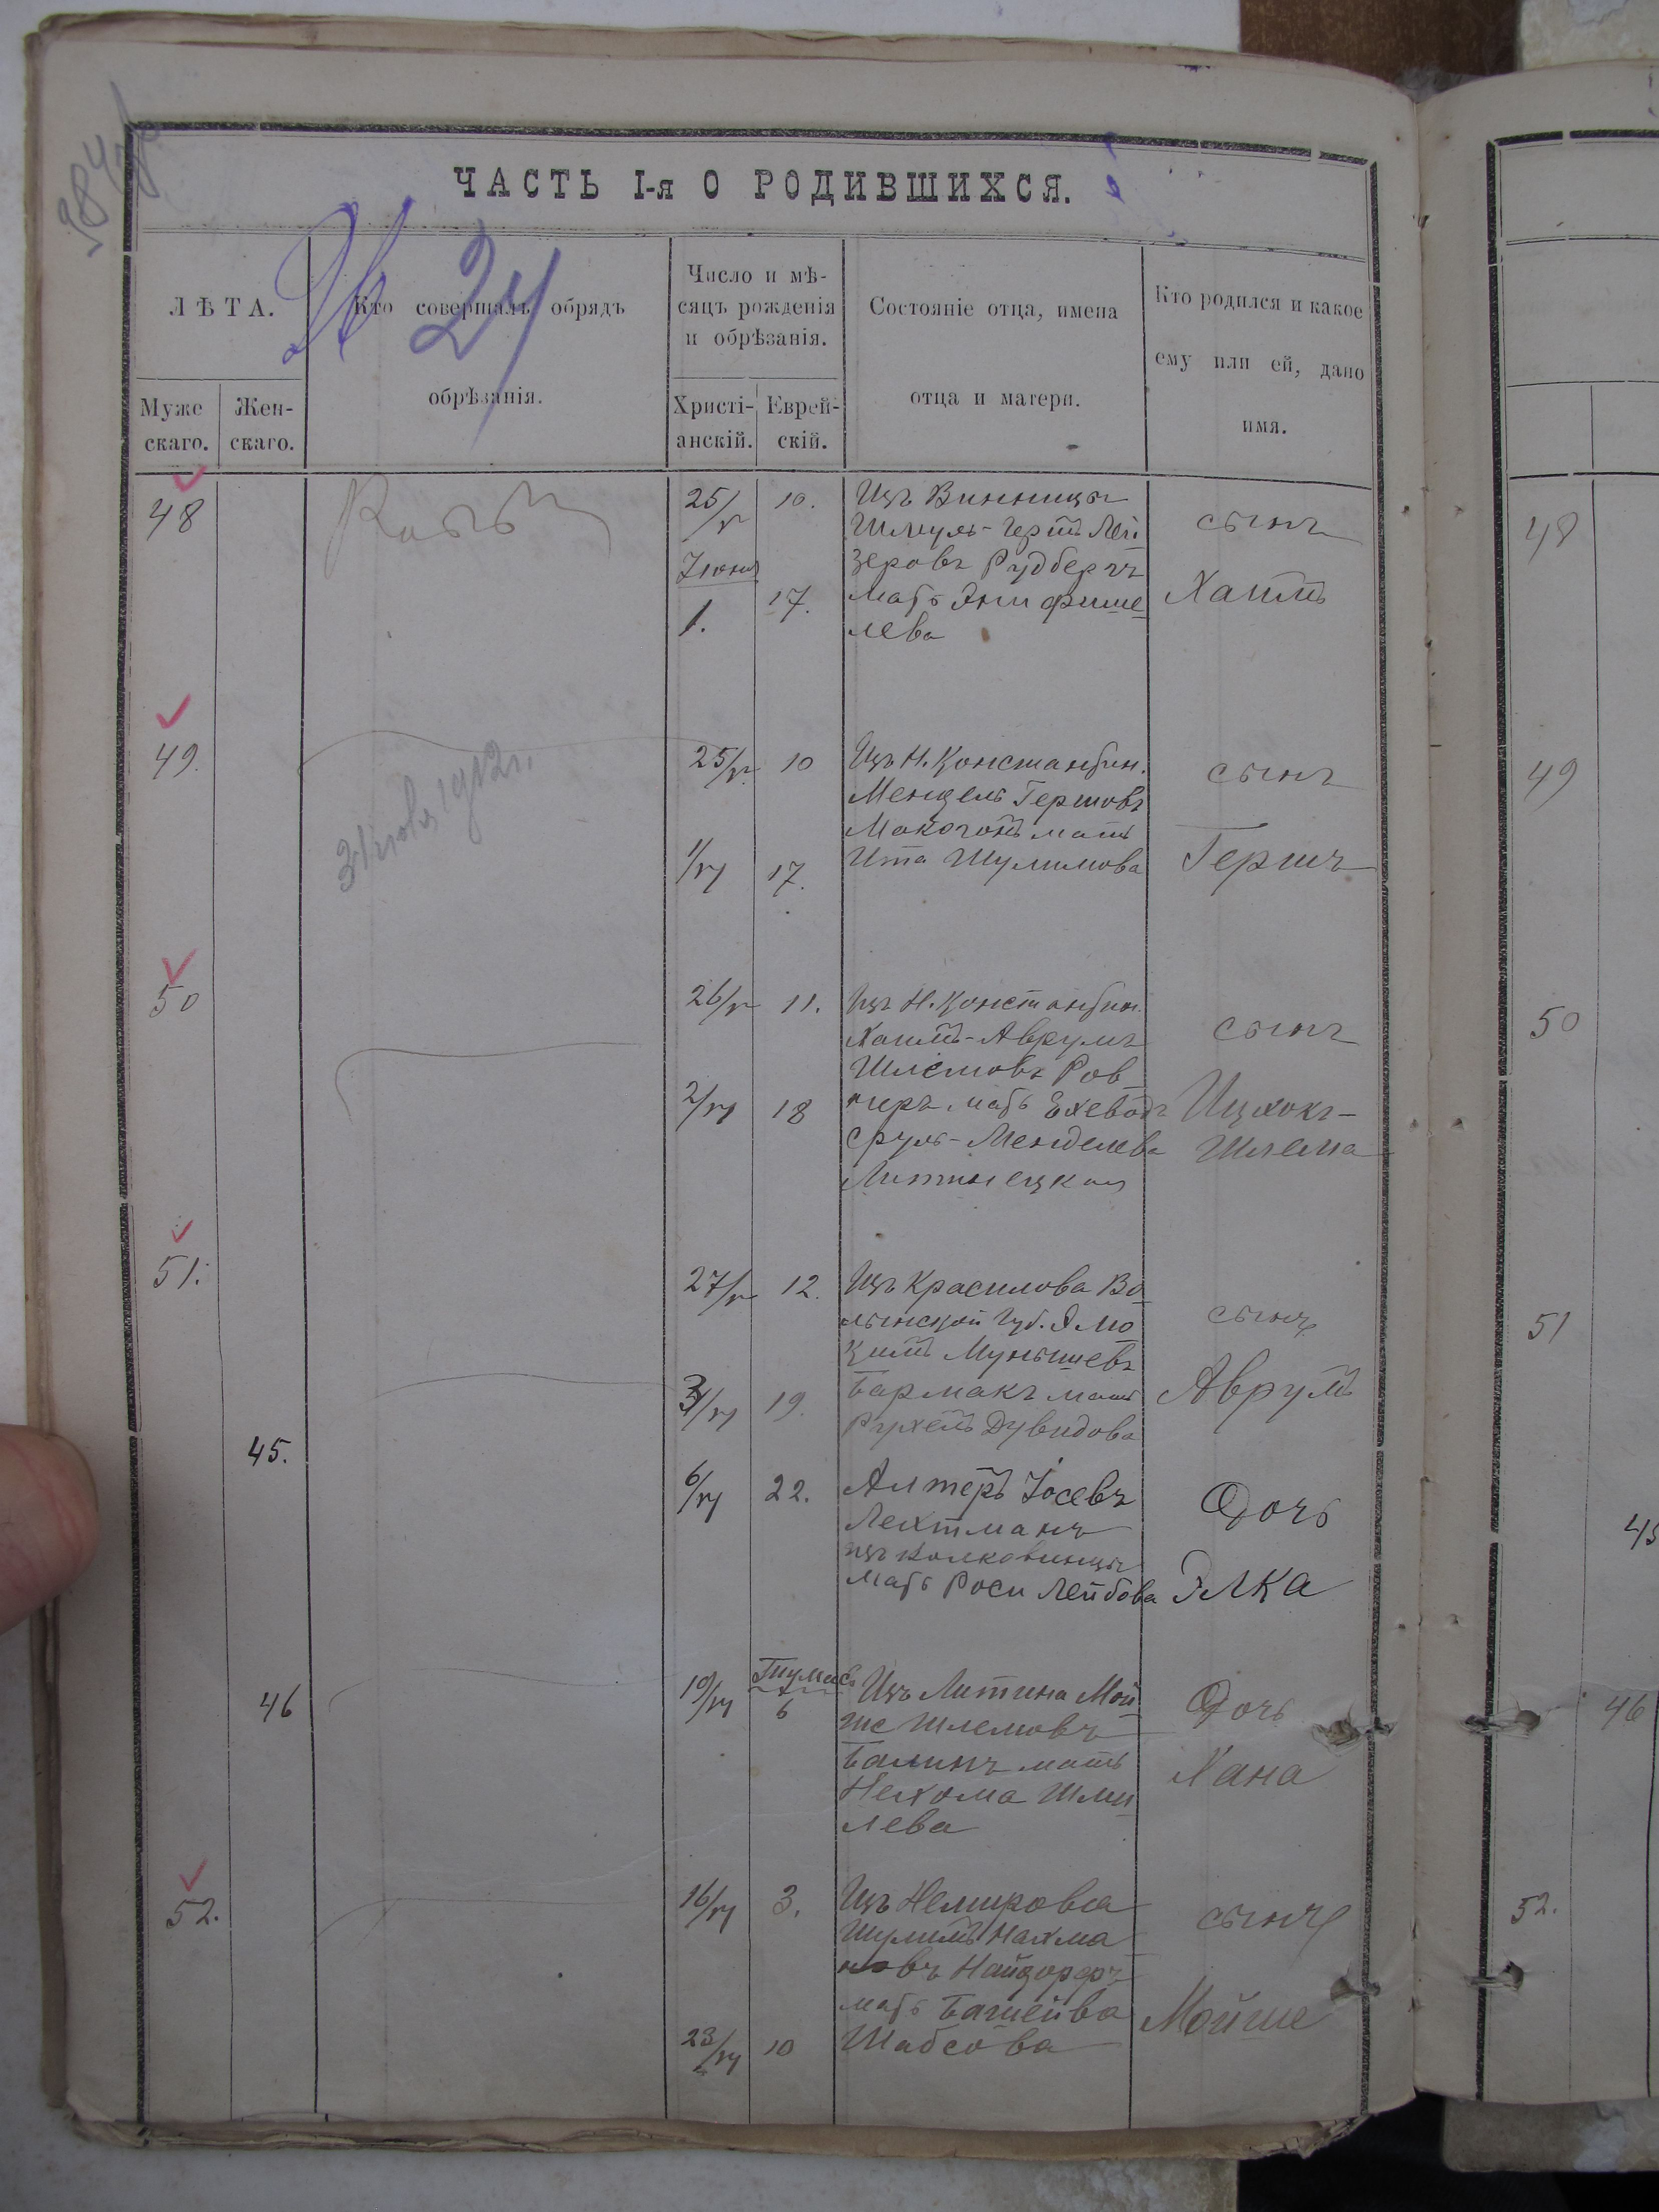 ЧАСТЬ I-я О РОДИВШИХСЯ.
№ 24
ЛѢТА.
Муже
скаго.
Жен-
скаго.
Кто совершалъ обрядъ
обрѣзанія.
Число и мѣ-
сяцъ рожденія
и обрѣзанія.
Христі-
анскій.
Еврей-
скій.
Состояніе отца, имена
отца и матери.
Кто родился и какое
ему или ей, дано
имя.
48
25/V
10.
Іюня
1.
17.
Изъ Винницы
Шмуль-Герш Лей
зеровъ Рудбергъ
мать Эни Фише
лева
сынъ
Хаимъ
48
49.
25/V
10
1/VI
17.
Изъ Н. Константин.
Мендель Гершовъ
Макогонъ мать
Ита Шулимова
сынъ
Гершъ
49
50
26/V
11.
2/VI
18
Изъ Н. Константин.
Хаимъ-Аврумъ
Шлемовъ Ров
неръ, мать
Сруль-Менделева
сынъ
Ицхокъ-
Шлема
50
51.
27/V
12.
3/VI
19.
Изъ Красилова Во
лынской губ.
Мунышевъ
Бармакъ мать
Рухель Дувидова
сынъ
Аврумъ
51
45.
6/VI
22.
Алтеръ Іосевъ
Лехтманъ
изъ
мать Роси Лейбова
Дочь
Элка
45
46
19/VI
6
Изъ Литина Мой
ше Шлемовъ
Балинъ мать
Нехома Шми
лева
Дочь
Хана
46
52.
16/VI
3.
23/VI
10
Изъ Немирова
Шулимъ Нахма
новъ
мать Башейва
Шабсова
сынъ
Мойше
52.